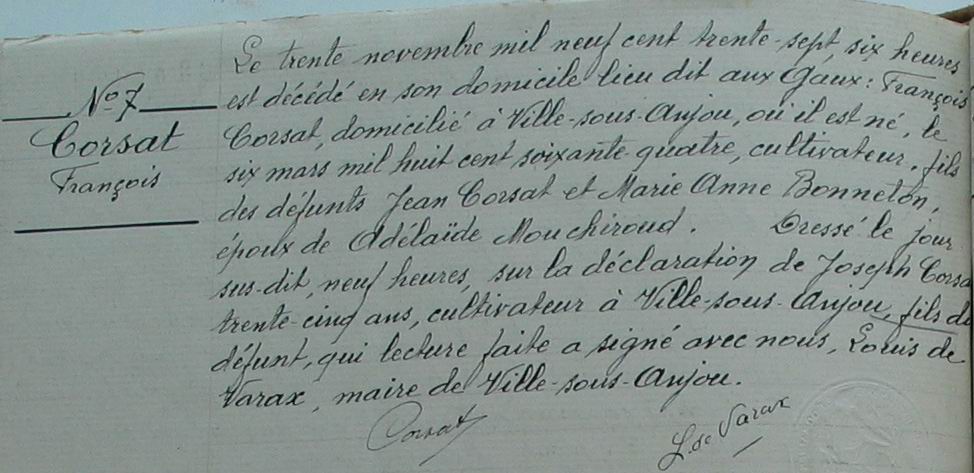 No 7
Corsat
François
Le trente novembre mil neuf cent trente-sept, six heures
est décédé en son domicile lieu dit aux Gaux : François
Corsat, domicilié à Ville-sous-Anjou, où il est né, le
six mars mil huit cent soixante-quatre, cultivateur, fils
des défunts Jean Corsat et Marie Anne Bonneton,
époux de Adélaïde Mouchiroud. Dressé le jour
sus-dit, neuf heures, sur la déclaration de Joseph Corsa
trente-cinq ans, cultivateur à Ville-sous-Anjou, fils du
défunt, qui lecture faite a signé avec nous, Louis de
Varax, maire de Ville-sous-Anjou.
Corsat
L. de Varax